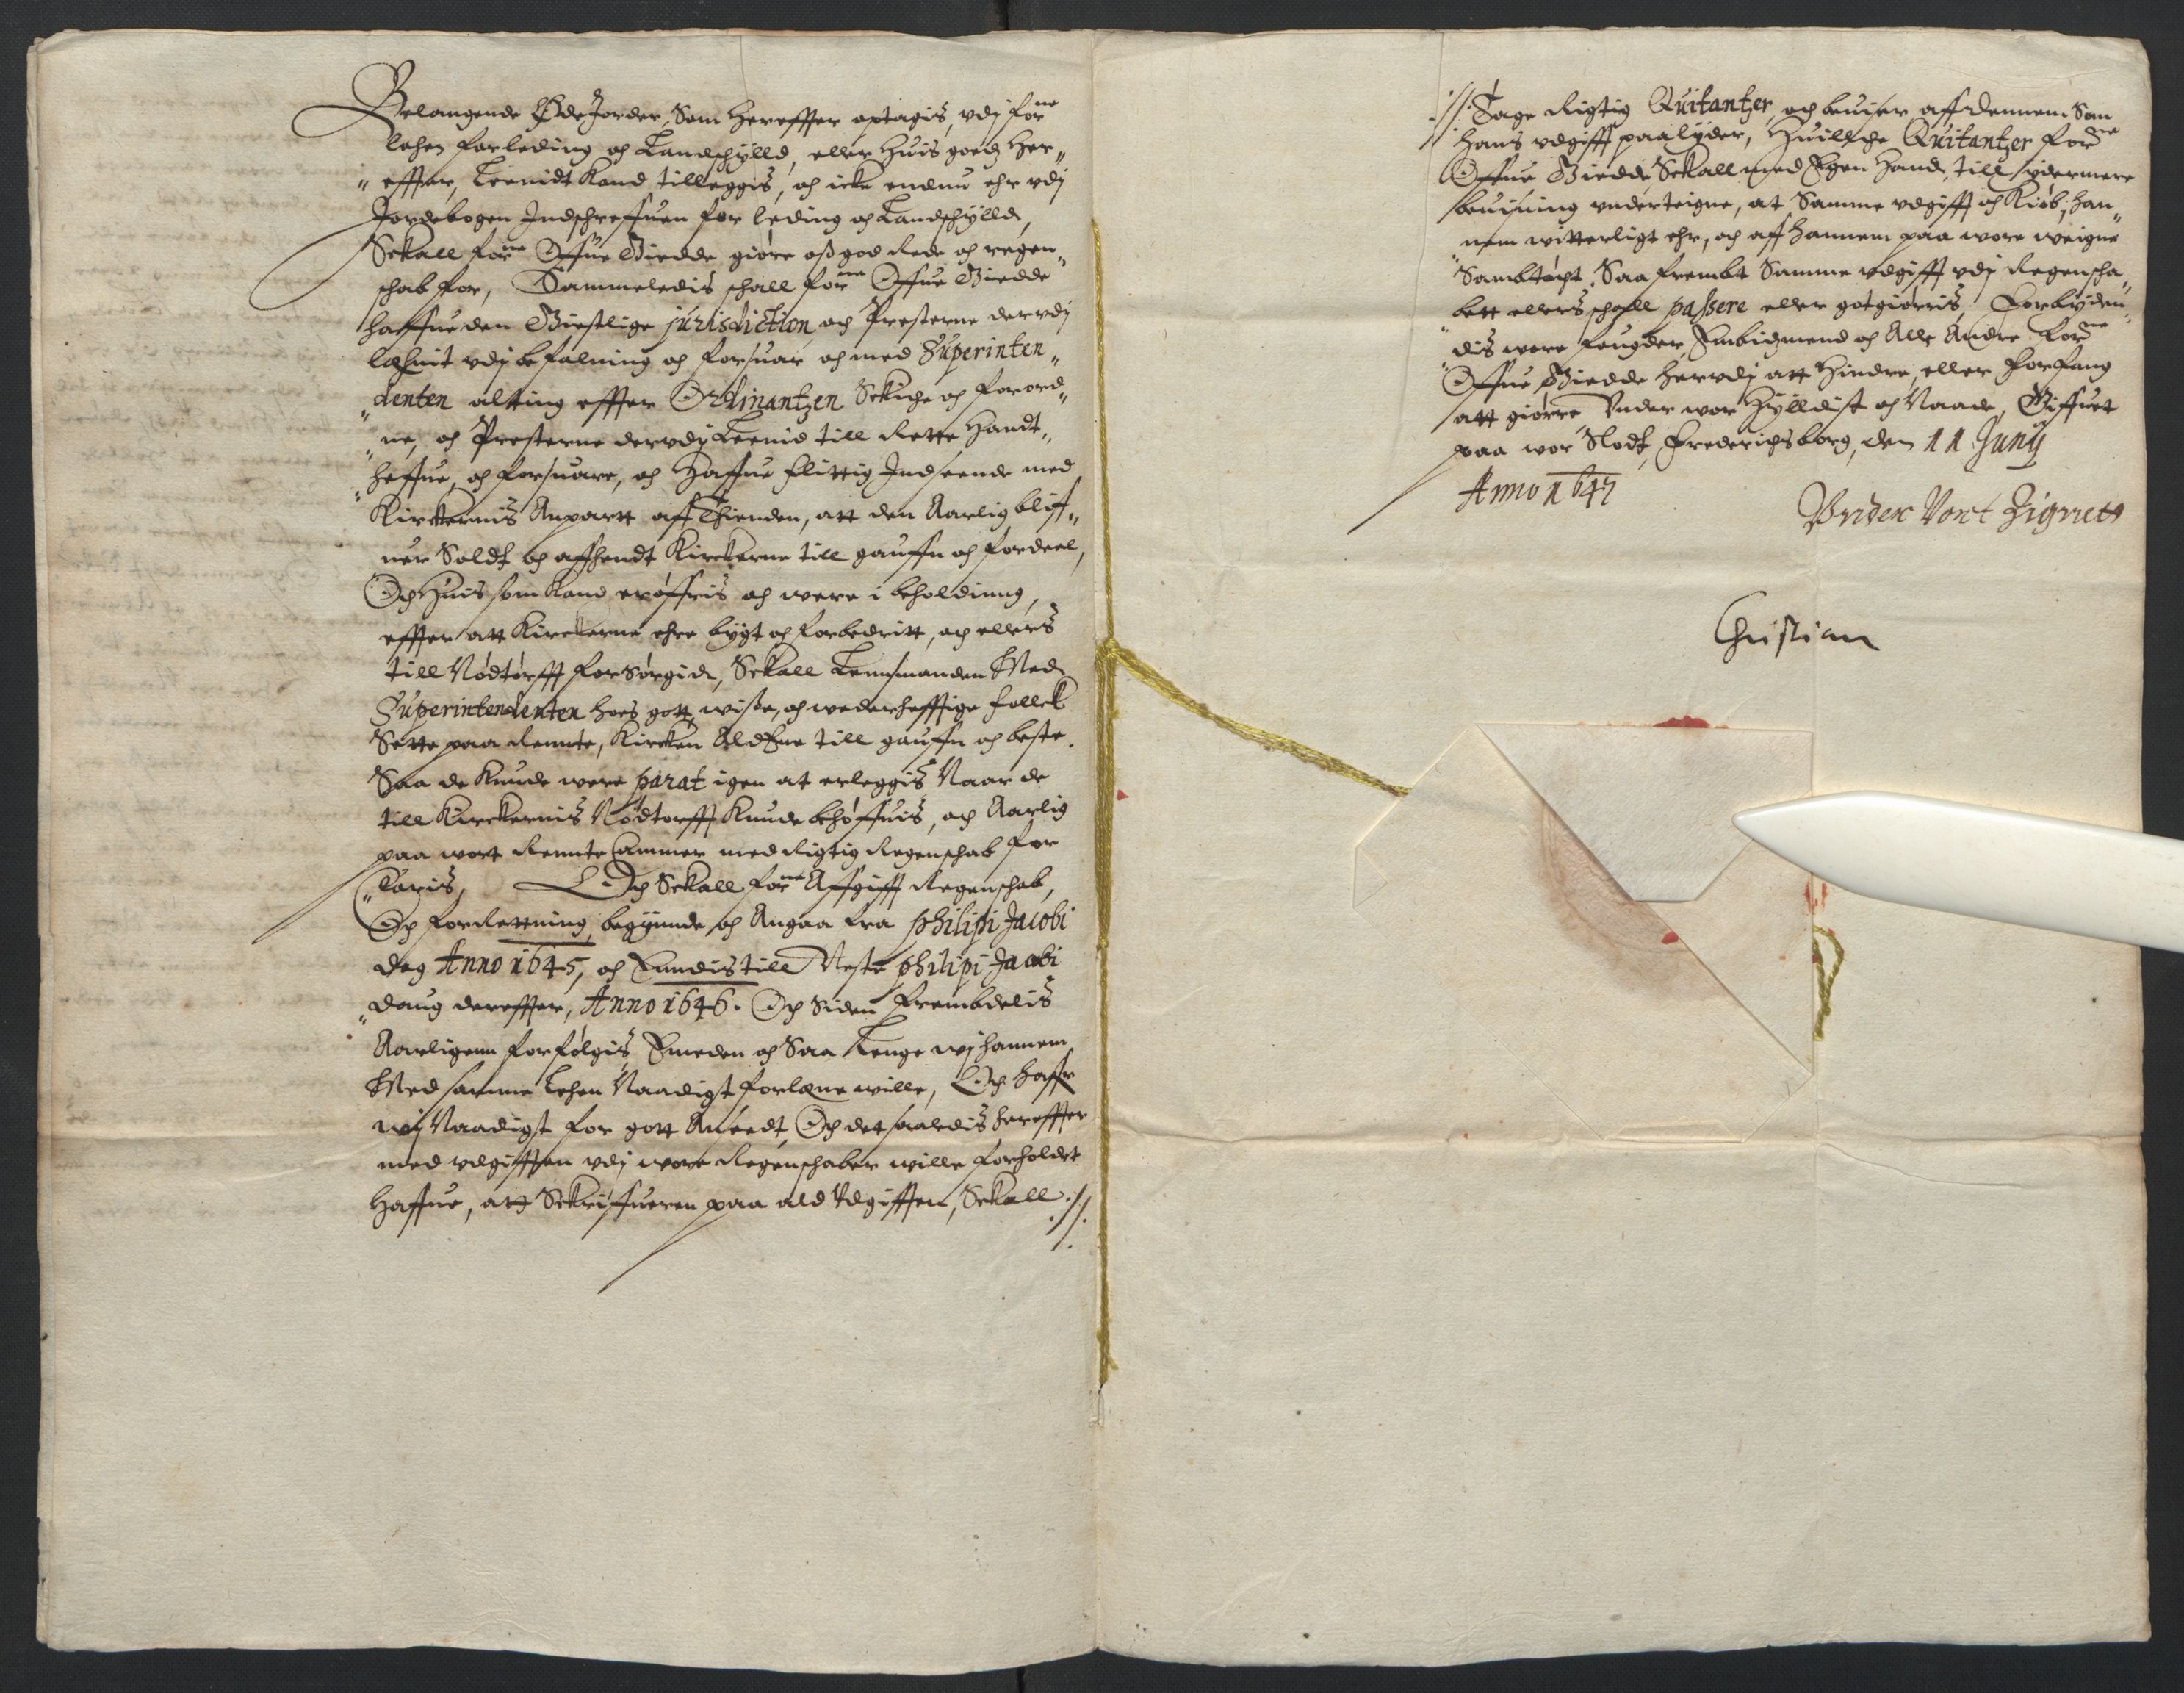 Belangende Øde Jorder, Som herefffter optagis, vdj for^ne
lehen for leding och Landschylld, eller huis goedz her„
„ effter, Leenidt Kand tilleggis, och icke endnu ehr vdj
Jordebogen Indschreffuen for leding och Landschylld,
Sckall for^ne Offue Giedde giøre oß god Rede och regen„
schab for, Sammeledis schall for^ne Offue Giedde
haffue den Giestlige jurisdiction och Presterne der vdj
læhnit vdj befalning och forsuar och med Superinten„
„denten alting effter Ordinantzen Schiche och forord„
„ne, och Presterne dervdj Leenid till Rette Handt„
„heffue, och forsuare, och Haffue flittig Indseende med
Kirckernis Anpartt aff Thienden, att den Aarlig blif„
uer Soldt och affhendt Kirckerne till gauffn och fordeel,
Och Huis som Kand erøffris och were i beholdinng,
effter att Kirckerne ehre bygt och forbedritt, och ellers
till Nødtørfft forsørgid, Sckall Lennsmanden Med
Superintendenten hoes gott, wiße, och wederhefftige follck
Sette paa Rennte, Kircken Aldene till gauffn och beste.
Saa de Kunde were parat igen at erleggis Naar de
till Kirckernis Nødtorfft Kunde behøffuis, och Aarlig
paa wort Rennte Cammer med Rigtig Regenschab for
„Claris, Och Sckall for^ne Affgifft Regenschab,
Och forRettning, begynnde och Angaa fra philipi Jacobi
dag Anno 1645, och Enndis till Neste philipi Jacobi
„daug dereffter, Anno 1646. Och Siden Frembdelis
Aarligenn forfølgis, Emeden och Saa Lenge wj hannem
Med samme Lehen Naadigst forlæne wille, Och haffr
wj Naadigst for gott Anseedt, Och det saaledis hereffter
med vdgifften vdj wore Regenschaber wille forholdet
Haffue, att Sckrifueren paa ald Vdgifften, Sckall .//.
.//. Tage Rigtig Quitantzer, och beuiser aff dennem Som
hans vdgifft paalyder, Huillche Quitantzer for^ne
Offue Giedde Sckall med Egen Haand, till ydermere
beuisning vnderteigne, at Samme vdgifft och Kiøb, han„
„nem witterligt ehr, och aff hannem paa wore weigne
Sambtøcht, Saa frembt Samme vdgifft vdj Regenscha„
„bett ellers schall passere eller gotgiørris, Forbyden„
„dis wore fougder, Embidzmend och Alle Andre For^ne
Offue Giedde hervdj att Hindre, eller Forfang
att giørre Vnder wor Hylldist och Naade, Giffuet
paa wor Slodt, Frederichsborg, den 11 Junij
Anno 1647
Vnder Vort Zignett
Christian